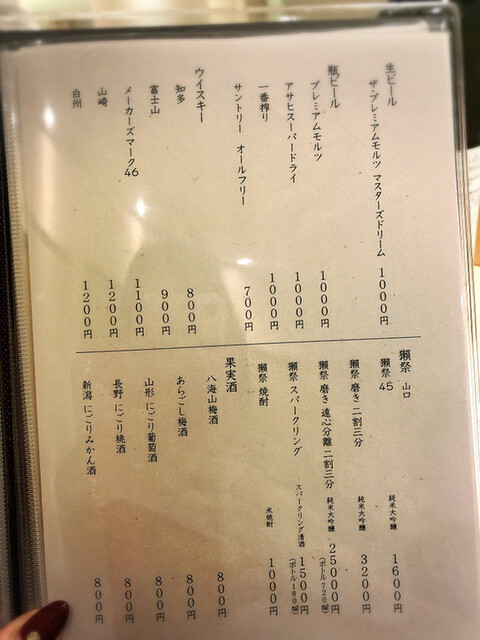 生ビール
ザ・プレミアムモルツ マスターズドリーム 1000円
瓶ビール
プレミアムモルツ 1000円
アサヒスーパードライ 1000円
一番搾り 1000円
サントリー オールフリー 700円
ウイスキー
知多 800円
富士山 900円
メーカーズマーク46 1100円
山崎 1200円
白州 1200円
獺祭 山口
獺祭 45 純米大吟醸 1600円
獺祭 磨き 二割三分 純米大吟醸 3200円
獺祭 磨き 遠心分離 二割三分 純米大吟醸 25000円
(ボトル720㎖)
獺祭 スパークリング スパークリング清酒 1500円
(ボトル180㎖)
獺祭 焼酎 米焼酎 1000円
果実酒
八海山梅酒 800円
あらごし梅酒 800円
山形 にごり葡萄酒 800円
長野 にごり桃酒 800円
新潟 にごりみかん酒 800円